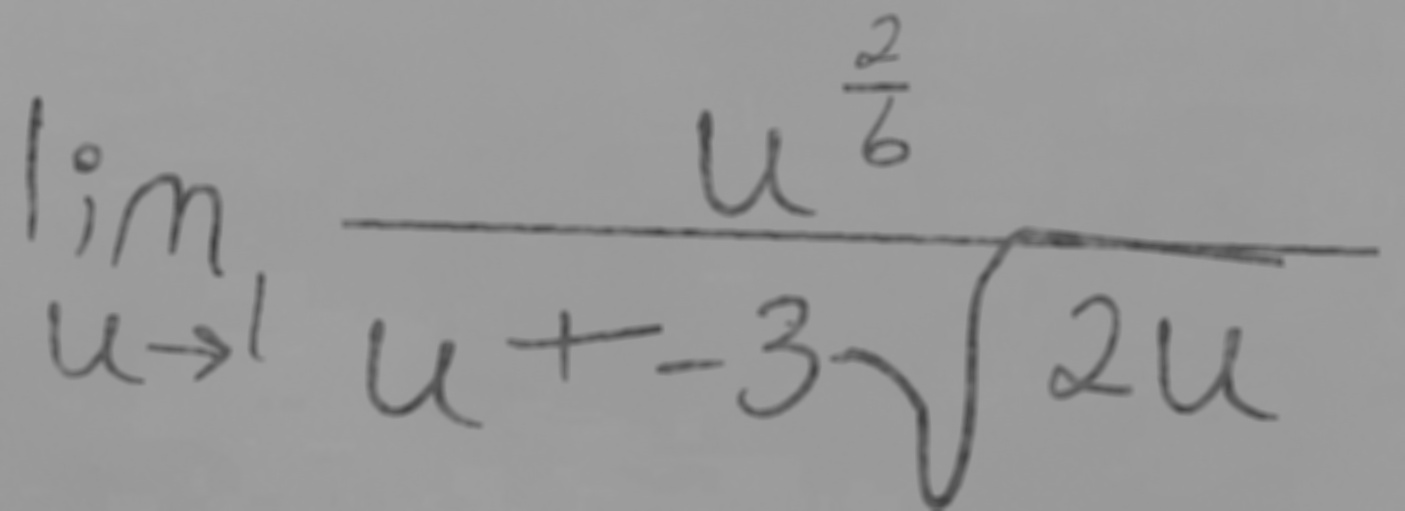 \lim_{u \to 1} \frac{u^{\frac{2}{6}}}{u + -3\sqrt{2u}}